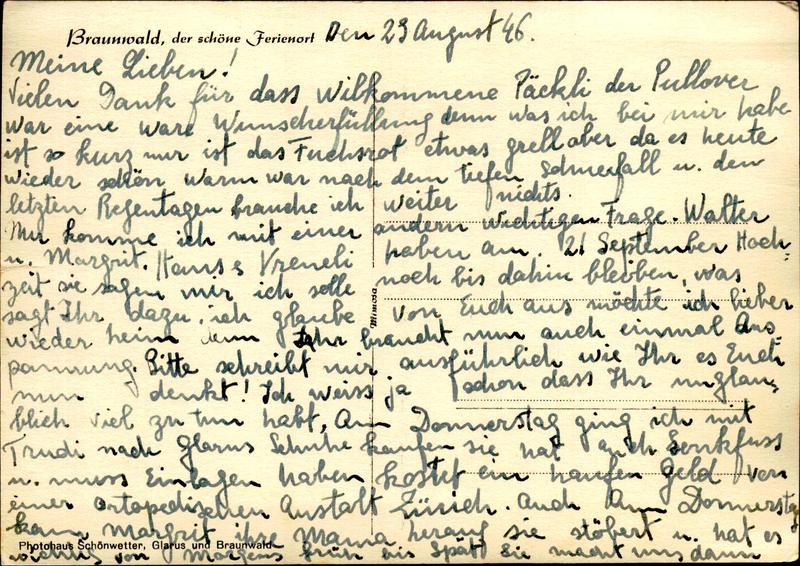 Braunwald, der schöne Ferienort Den 29 August 46.
Meine Lieben!
Vielen Dank für dass Wilkommene Päckli der Pullover
war eine ware Wunscherfüllung denn was ich bei mir habe
ist so kurz nur ist das Fuchsrot etwas grell aber da es heute
wieder schön warm war nach dem tiefen Schneefall u. den
letzten Regentagen brauche ich weiter nichts.
Nur komme ich mit einer andern wichtigen Frage. Walter
u. Margrit. haben am. 21 September Hoch-
zeit sie sagen mir ich solle noch bis dahin bleiben, was
Hans & Vreneli
sagt Ihr dazu, ich glaube von Euch aus möchte ich lieber
wieder heim denn Ihr braucht nun auch einmal Aus-
pannung. Bitte schreibt mir ausführlich wie Ihr es Euch
nun denkt! Ich weiss ja schon dass Ihr unglau-
blich viel zu tun habt, Am Donnerstag ging ich mit
Trudi nach Glarus Schuhe kaufen sie hat auch Senkfuss
u. muss Einlagen haben kostet ein haufen Geld von
einer Ortopedischen Anstalt Zürich. Auch Am Donnerstag
kam Margrit ihre Mama herauf sie stöbert u. hat es
wichtig von Morgens früh bis Spät Sie macht uns dann
Photohaus Schönwetter, Glarus und Braunwald
Mimosa